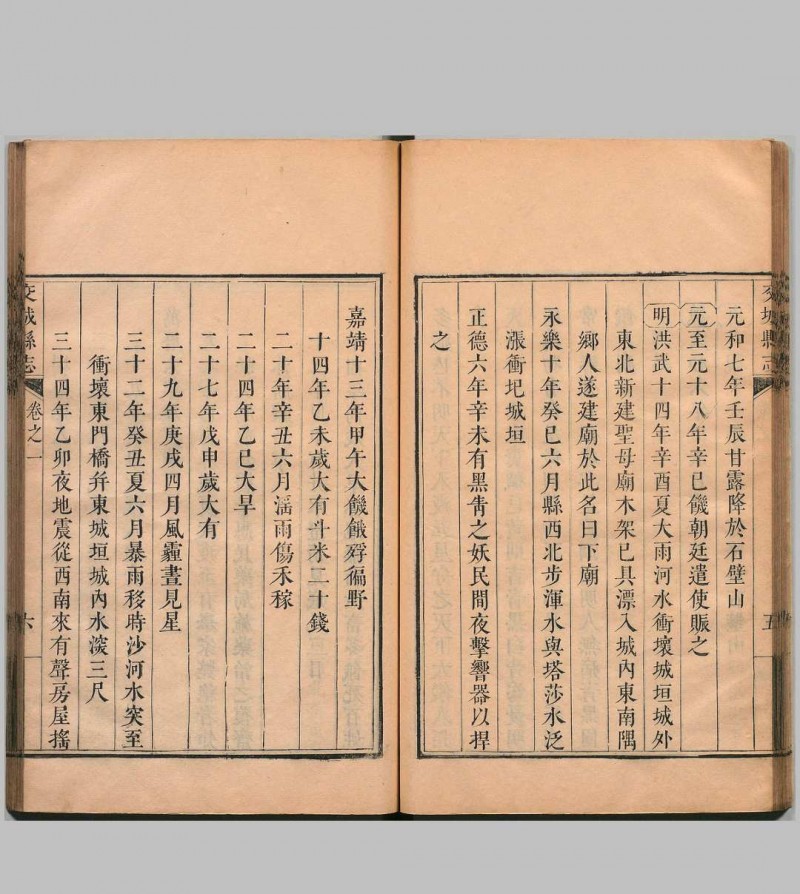 交城縣志
五
元和七年壬辰甘露降於石壁山
元至元十八年辛巳饑朝廷遣使賑之
明洪武十四年辛酉夏大雨河水衝壞城垣城外
東北新建聖母廟木架已具漂入城內東南隅
鄉人遂建廟於此名曰下廟
永樂十年癸巳六月縣西北步渾水與塔莎水泛
漲衝圮城垣
正德六年辛未有黑眚之妖民間夜擊響器以捍
之
嘉靖十三年甲午大饑餓殍徧野
十四年乙未歲大有斗米二十錢
二十年辛丑六月滛雨傷禾稼
二十四年乙巳大旱
二十七年戊申歲大有
二十九年庚戌四月風霾晝見星
三十二年癸丑夏六月暴雨移時沙河水突至
衝壞東門橋弁東城垣城內水深三尺
三十四年乙卯夜地震從西南來有聲房屋搖
交城縣志
卷之一
六